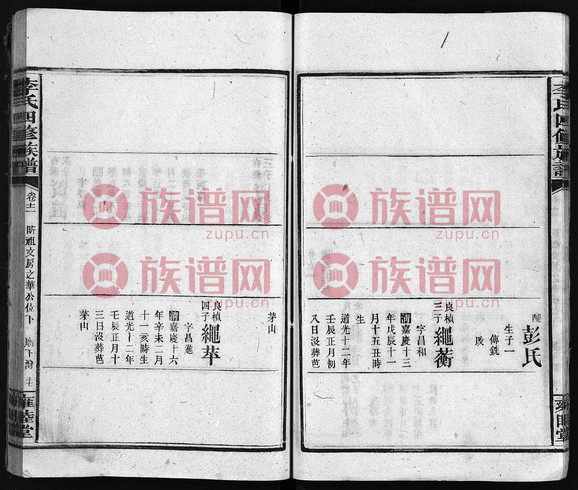 配
彭氏
生子一
傳銑
歿
良楨
三子
繩蘅
字昌和
清嘉慶十三
年戊辰十一
月十五丑時
生
道光十二年
壬辰正月初
八日沒葬芭
茅山
良楨
四子
繩華
字昌進
清嘉慶十六
年辛未二月
十一亥時生
道光十二年
壬辰正月十
三日沒葬芭
茅山
李氏四修族譜
卷十二
雍睦堂
李氏四修族譜
雍睦堂
族谱网
zupu.cn
族谱网
zupu.cn
族谱网
zupu.cn
族谱网
zupu.cn